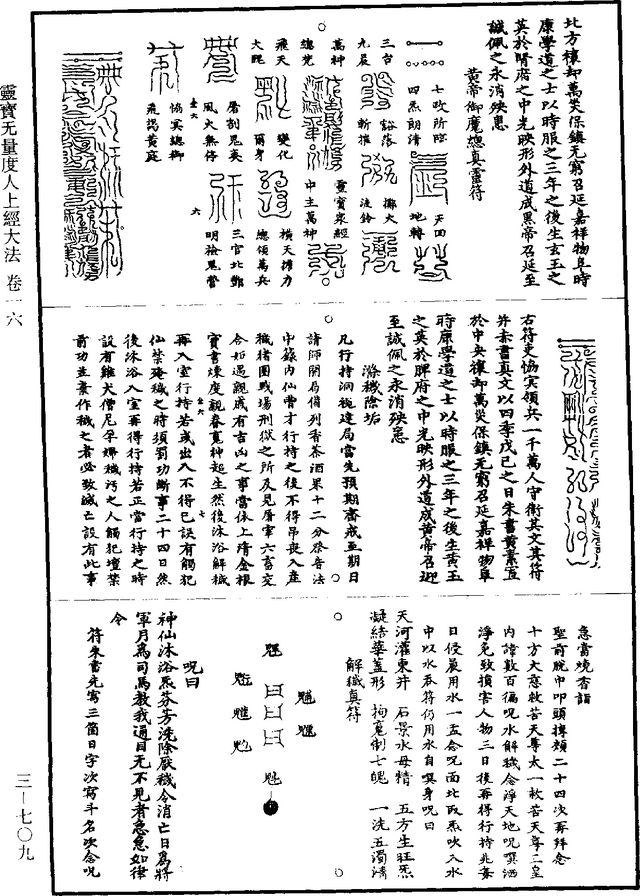 北方禳却萬災保鎮无窮召延嘉祥物阜時
康學道之士以時服之三年之後生玄玉之
英於腎府之中光映形外道成黑帝召延至
誠佩之永消殃患
黃帝御魔總真靈符
七政所臨
四炁朗清
天回
地轉
三台
九晨
豁落
斬摧
擲火
流鈴
萬神
總兇
靈寶泉經
中主萬神
飛天
大醜
變化
爾身
橫天擔力
總領萬兵
屠割鬼爽
風火無停
三官北酆
明檢鬼營
協冥總御
飛謁黃庭
右符吏協冥領兵一千萬人守衛其文其符
并赤書真文以四季戊己之日朱書黃素置
於中央禳却萬災保鎮无窮召延嘉祥物阜
時康學道之士以時服之三年之後生黃玉
之英於脾府之中光映形外道成黃帝召迎
至誠佩之永消殃患
滌穢除垢
凡行持洞視建局當先預期齋戒至期日
請師開局備列香茶酒果十二分祭告法
中籙內仙曹才行持之後不得弔喪入產
穢猪圈戰場刑獄之所及見屠宰六畜交
合如遇親戚有吉凶之事當依上清金根
寶書煉度訖眷寬神超生然後沐浴解穢
再入室行持若或出入不得已誤有觸犯
仙禁淹穢之時須罰功斷事二十四日然
後沐浴入室再得行持若正當行持之時
設有雞犬僧尼孕婦穢污之人觸犯壇禁
前功並棄作穢之者必致滅亡設有此事
急當燒香詣
聖前脫巾叩頭摶頰二十四次再拜念
十方大慈救苦天尊太一救苦天尊二皇
內諱數百徧呪水解穢念淨天地呪噀洒
淨免致損害人物三日後再得行持兆妄
日侵晨用水一盂念呪面北取炁吹入水
中以水吞符仍用水自噀身呪曰
天河灌東井 石景水母精 五方生旺炁
凝結華蓋形 拘魂制七魄 一洗五濁清
解穢真符
呪曰
神仙沐浴炁芬芳洗除厭穢令消亡日為將
軍月為司馬教我過目无不見者急急如律
令
符朱書先寫三箇日字次寫斗名次念呪
靈寶无量度人上經大法 卷一六
三-七〇九